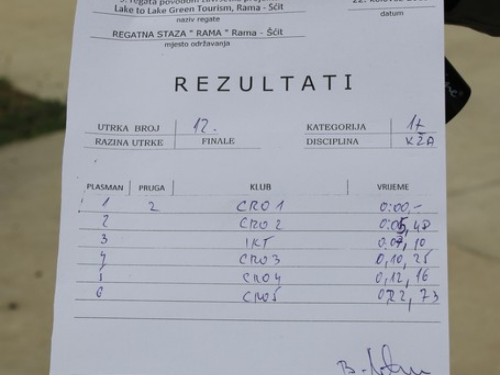 Lake to Lake Green Tourism, Rama - Šćit
naziv regate
datum
REGATNA STAZA " RAMA " Rama - Šćit
mjesto održavanja
REZULTATI
UTRKA BROJ 12. KATEGORIJA 1+
RAZINA UTRKE FINALE DISCIPLINA KŽA
PLASMAN PRUGA KLUB VRIJEME
1 2 CRO 1 0:00,-
2 CRO 2 0:05,48
3 IKT 10
4 CRO 3 0,10,25
5 CRO 4 0,12,16
6 CRO 5 22,73